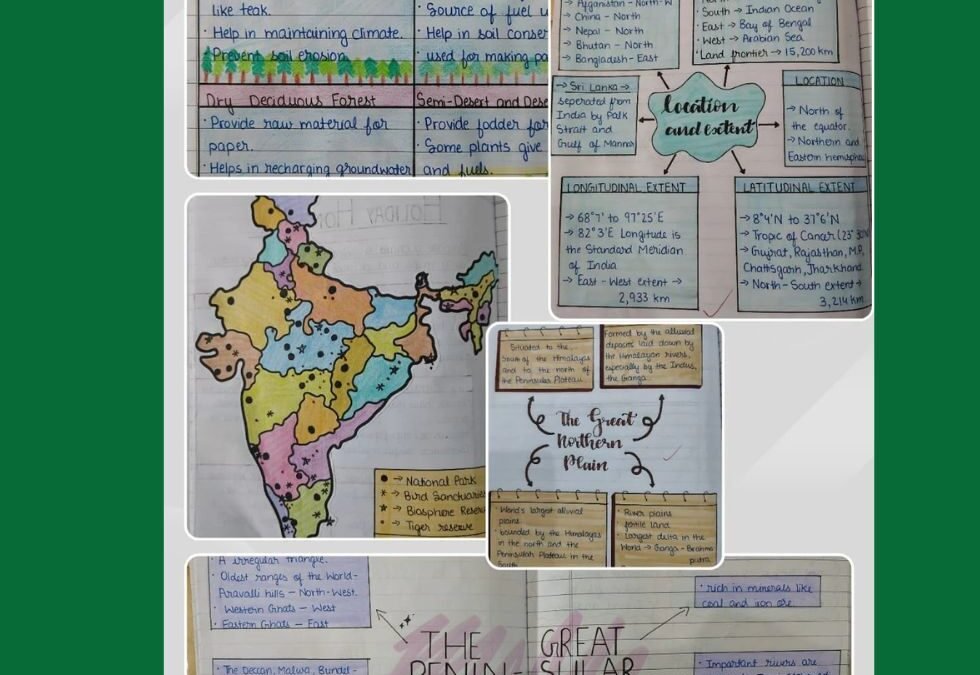 like teak.
· Help in maintaining climate.
· Prevent soil erosion.
Dry Deciduous Forest
· Provide raw material for
paper.
· Helps in recharging groundwater
· Source of fuel
· Help in soil
· used for making
Semi-Desert and
· Provide fodder for
· Some plants give
and fuels.
→ Afganistan - North-W
→ China - North
→ Nepal - North
→ Bhutan - North
→ Bangladesh - East
South → Indian Ocean
· East → Bay of Bengal
· West → Arabian Sea
· Land frontier → 15,200 km
→ Sri Lanka →
seperated from
India by Palk
Strait and
Gulf of Mannar
Location
and extent
LOCATION
→ North of
the equator.
→ Northern and
Eastern
LONGITUDINAL EXTENT
→ 68°7' to 97°25'E
→ 82°3'E Longitude is
the Standard Meridian
of India
→ East - West extent →
2,933 km
LATITUDINAL EXTENT
→ 8°4'N to 37°6'N
→ Tropic of Cancer
→ Gujrat, Rajasthan, M.P,
Chattsgarh, Jharkhand
→ North - South extent →
3,214 km
● → National Park
→ Bird Sanctuaries
→ Biosphere
→ Tiger reserve
Situated to the
South of the Himalayas
and to the north of
the Peninsular Plateau.
Formed by the alluvial
deposits laid down by
the Himalayan rivers,
especially by the Indus,
the Ganga.
The Great
Northern
Plain
· World's largest alluvial
plains.
· bounded by the Himalayas
in the north and the
Peninsular Plateau in the
South
· River plains
fertile land
· Largest delta in the
World → Ganga - Brahma
putra
· A irregular triangle.
· Oldest ranges of the World-
Aravalli hills - North-West.
· Western Ghats - West
· Eastern Ghats - East
· The Deccan, Malwa, Bundel-
THE GREAT
PENIN - SULAR
· rich in minerals like
coal and iron ore.
· Important rivers are